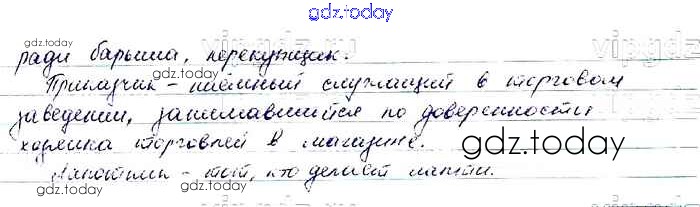 gdz.today
ради барыша, перекупщик.
Приказчик - наёмный служащий в торговом
заведении, занимавшийся по доверенности
хозяина торговлей в магазине.
Лапотник - тот, кто делает лапти.
gdz.today
gdz.today
gdz.today
gdz.today
gdz.today